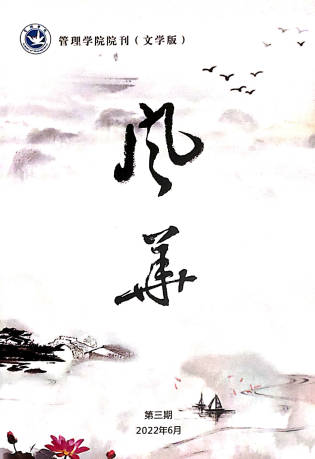 管理学院院刊（文学版）
风
华
第三期
2022年6月